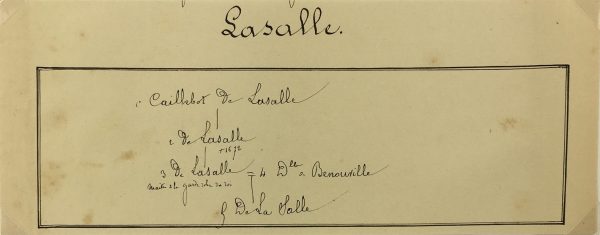 Lasalle.
1 Caillebot de Lasalle
2 de Lasalle
+ 1672
3 de Lasalle = 4 Dlle de Benouville
garde du roi
5 De La Salle